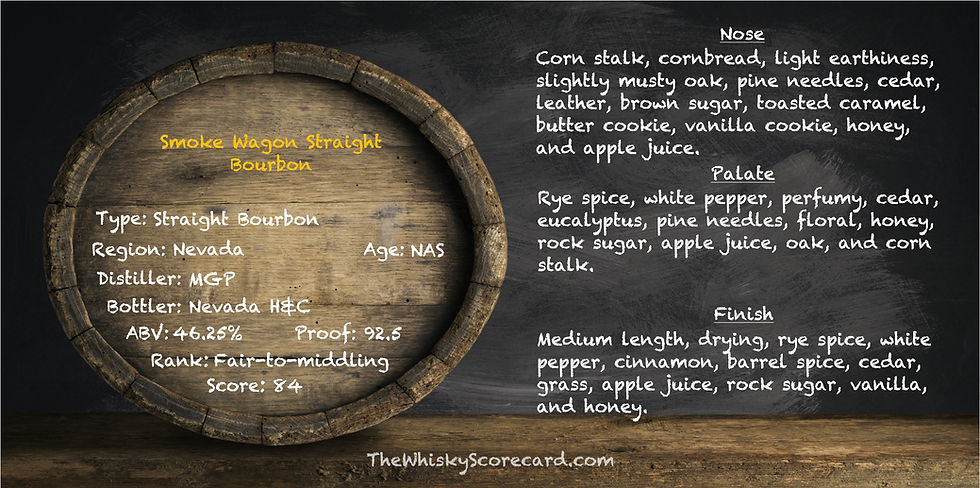 Smoke Wagon Straight
Bourbon
Type: Straight Bourbon
Region: Nevada Age: NAS
Distiller: MGP
Bottler: Nevada H&C
ABV: 46.25% Proof: 92.5
Rank: Fair-to-middling
Score: 84
Nose
Corn stalk, cornbread, light earthiness,
slightly musty oak, pine needles, cedar,
leather, brown sugar, toasted caramel,
butter cookie, vanilla cookie, honey,
and apple juice.
Palate
Rye spice, white pepper, perfumy, cedar,
eucalyptus, pine needles, floral, honey,
rock sugar, apple juice, oak, and corn
stalk.
Finish
Medium length, drying, rye spice, white
pepper, cinnamon, barrel spice, cedar,
grass, apple juice, rock sugar, vanilla,
and honey.
TheWhiskyScorecard.com